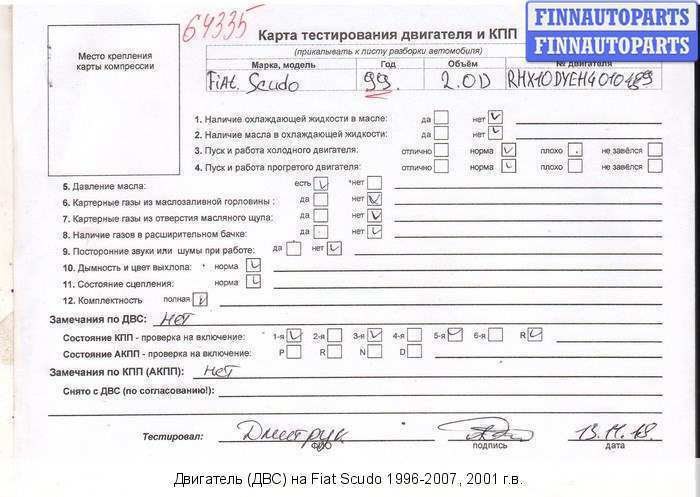 64335
Карта тестирования двигателя и КПП
FINNAUTOPARTS
FINNAUTOPARTS
(прикалывать к листу разборки автомобиля)
Место крепления
карты компрессии
Марка, модель Год Объём № двигателя
Fiat Scudo 99 2.0D RHX10DYEH4010489
1. Наличие охлаждающей жидкости в масле: да нет
2. Наличие масла в охлаждающей жидкости: да нет
3. Пуск и работа холодного двигателя: отлично норма плохо не завёлся
4. Пуск и работа прогретого двигателя: отлично норма плохо не завёлся
5. Давление масла: есть нет
6. Картерные газы из маслозаливной горловины : да нет
7. Картерные газы из отверстия масляного щупа: да нет
8. Наличие газов в расширительном бачке: да нет
9. Посторонние звуки или шумы при работе: да нет
10. Дымность и цвет выхлопа: норма
11. Состояние сцепления: норма
12. Комплектность полная
Замечания по ДВС: НЕТ
Состояние КПП - проверка на включение: 1-я 2-я 3-я 4-я 5-я 6-я R
Состояние АКПП - проверка на включение: P R N D
Замечания по КПП (АКПП): НЕТ
Снято с ДВС (по согласованию!):
Тестировал: Дмитрук 13.11.18
ФИО подпись дата
Двигатель (ДВС) на Fiat Scudo 1996-2007, 2001 г.в.